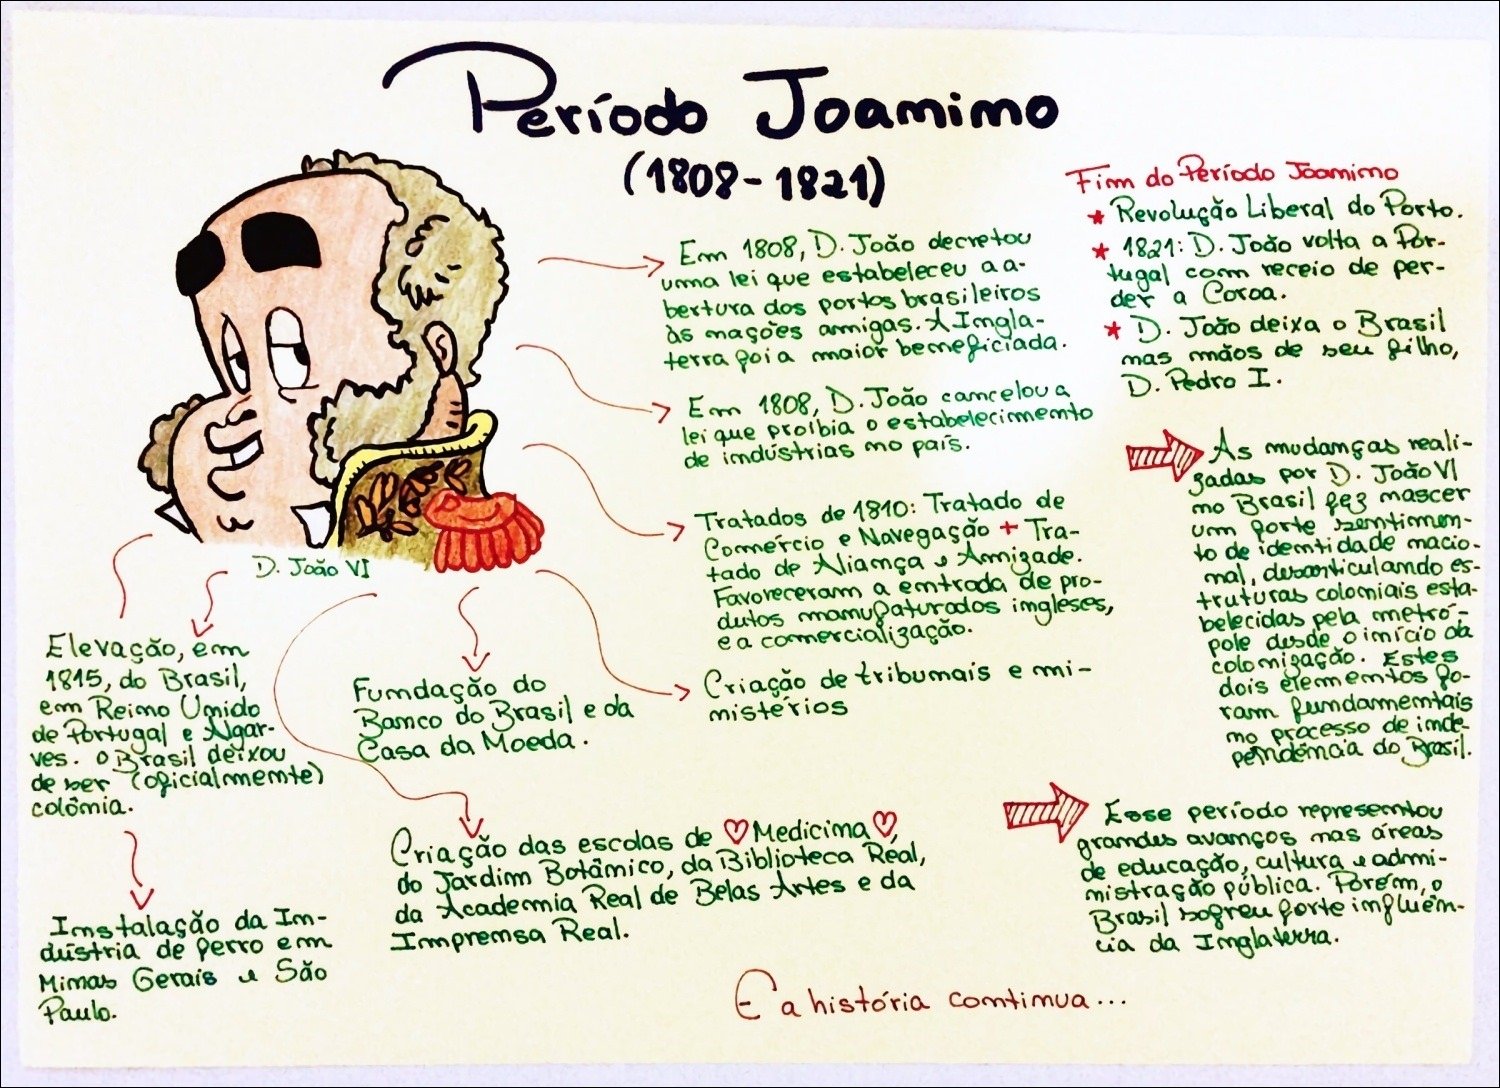 Período Joanino
(1808-1821)
D. João VI
Em 1808, D. João decretou
uma lei que estabeleceu a a-
bertura dos portos brasileiros
às nações amigas. A Ingla-
terra foi a maior beneficiada.
Em 1808, D. João cancelou a
lei que proibia o estabelecimento
de indústrias no país.
Tratados de 1810: Tratado de
Comércio e Navegação + Tra-
tado de Aliança e Amizade.
Favoreceram a entrada de pro-
dutos manufaturados ingleses,
e a comercialização.
Criação de tribunais e mi-
nistérios
Fundação do
Banco do Brasil e da
Casa da Moeda.
Criação das escolas de ♡Medicina♡,
do Jardim Botânico, da Biblioteca Real,
da Academia Real de Belas Artes e da
Imprensa Real.
Elevação, em
1815, do Brasil,
em Reino Unido
de Portugal e Algar-
ves. O Brasil deixou
de ser (oficialmente)
colônia.
Instalação da In-
dústria de ferro em
Minas Gerais e São
Paulo.
Fim do Período Joanino
* Revolução Liberal do Porto.
* 1821: D. João volta a Por-
tugal com receio de per-
der a Coroa.
* D. João deixa o Brasil
nas mãos de seu filho,
D. Pedro I.
As mudanças reali-
zadas por D. João VI
no Brasil fez nascer
um forte sentimen-
to de identidade nacio-
nal, desarticulando es-
truturas coloniais esta-
belecidas pela metró-
pole desde o início da
colonização. Estes
dois elementos fo-
ram fundamentais
no processo de inde-
pendência do Brasil.
Esse período representou
grandes avanços nas áreas
de educação, cultura e admi-
nistração pública. Porém, o
Brasil sofreu forte influên-
cia da Inglaterra.
E a história continua...